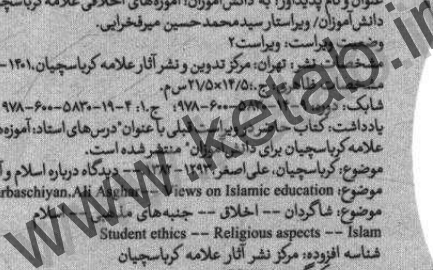 عنوان و نام پدیدآور: به دانش‌آموزان: آموزه‌های اخلاقی علامه کرباسچیان
دانش‌آموزان/ ویراستار سیدمحمدحسین میرفخرایی.
وضعیت ویراست: ویراست۲
مشخصات نشر: تهران: مرکز تدوین و نشر آثار علامه کرباسچیان، ۱۴۰۱-
مشخصات ظاهری: ج.: ۱۴/۵×۲۱/۵س‌م.
شابک: ۹۷۸-۶۰۰-۵۸۳۰ ج.۱: ۴-۱۹-۵۸۳۰-۶۰۰-۹۷۸
یادداشت: کتاب حاضر در ویراست قبلی با عنوان "درس‌های استاد: آموزه‌های
علامه کرباسچیان برای دانش‌آموزان" منتشر شده است.
موضوع: کرباسچیان، علی‌اصغر، -- دیدگاه درباره اسلام و آ
موضوع: rbaschiyan,Ali Asghar -- Views on Islamic education
موضوع: شاگردان -- اخلاق -- جنبه‌های مذهبی -- اسلام
Student ethics -- Religious aspects -- Islam
شناسه افزوده: مرکز نشر آثار علامه کرباسچیان
www.ketab.ir